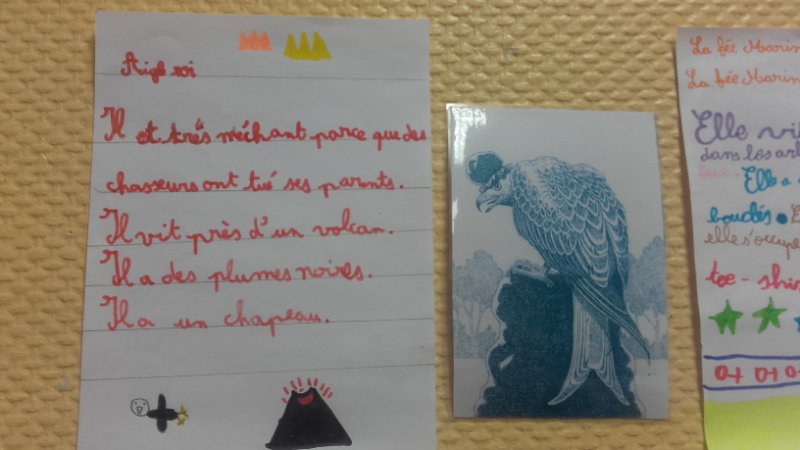 Aigle roi
Il et très méchant parce que des
chasseurs ont tué ses parents.
Il vit près d'un volcan.
Il a des plumes noires.
Il a un chapeau.
La fée Marin
La fée Marin
Elle vi
dans les ar
Elle a
bouclés.
elle s'occupe
tee-shir